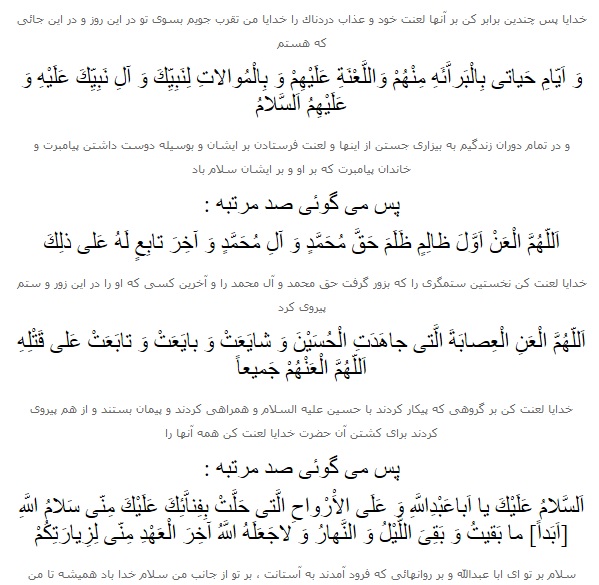 خدایا پس چندین برابر کن بر آنها لعنت خود و عذاب دردناك را خدایا من تقرب جویم بسوی تو در این روز و در این جائی
که هستم
وَ اَیّامِ حَیاتى بِالْبَراَّئَهِ مِنْهُمْ وَاللَّعْنَةِ عَلَیْهِمْ وَ بِالْمُوالاتِ لِنَبِیِّكَ وَ آلِ نَبِیِّكَ عَلَیْهِ وَ
عَلَیْهِمُ اَلسَّلامُ
و در تمام دوران زندگیم به بیزاری جستن از اینها و لعنت فرستادن بر ایشان و بوسیله دوست داشتن پیامبرت و
خاندان پیامبرت که بر او و بر ایشان سلام باد
پس می گوئی صد مرتبه :
اَللّهُمَّ الْعَنْ اَوَّلَ ظالِمٍ ظَلَمَ حَقَّ مُحَمَّدٍ وَ آلِ مُحَمَّدٍ وَ آخِرَ تابِعٍ لَهُ عَلى ذلِكَ
خدایا لعنت کن نخستین ستمگری را که بزور گرفت حق محمد و آل محمد را و آخرین کسی که او را در این زور و ستم
پیروی کرد
اَللّهُمَّ الْعَنِ الْعِصابَةَ الَّتى جاهَدَتِ الْحُسَیْنَ وَ شایَعَتْ وَ بایَعَتْ وَ تابَعَتْ عَلى قَتْلِهِ
اَللّهُمَّ الْعَنْهُمْ جَمیعاً
خدایا لعنت کن بر گروهی که پیکار کردند با حسین علیه السلام و همراهی کردند و پیمان بستند و از هم پیروی
کردند برای کشتن آن حضرت خدایا لعنت کن همه آنها را
پس می گوئی صد مرتبه :
اَلسَّلامُ عَلَیْكَ یا اَباعَبْدِاللَّهِ وَ عَلَى الاَْرْواحِ الَّتى حَلَّتْ بِفِناَّئِكَ عَلَیْكَ مِنّى سَلامُ اللَّهِ
[اَبَداً] ما بَقیتُ وَ بَقِىَ اللَّیْلُ وَ النَّهارُ وَ لاجَعَلَهُ اللَّهُ آخِرَ الْعَهْدِ مِنّى لِزِیارَتِكُمْ
سلام بر تو ای ابا عبدالله و بر روانهائی که فرود آمدند به آستانت ، بر تو از جانب من سلام خدا باد همیشه تا من